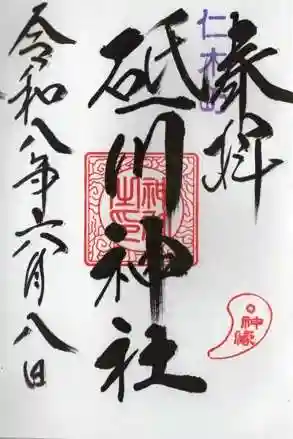 奉拝
仁木町
砥川神社
神社之印
神縁
令和八年六月八日